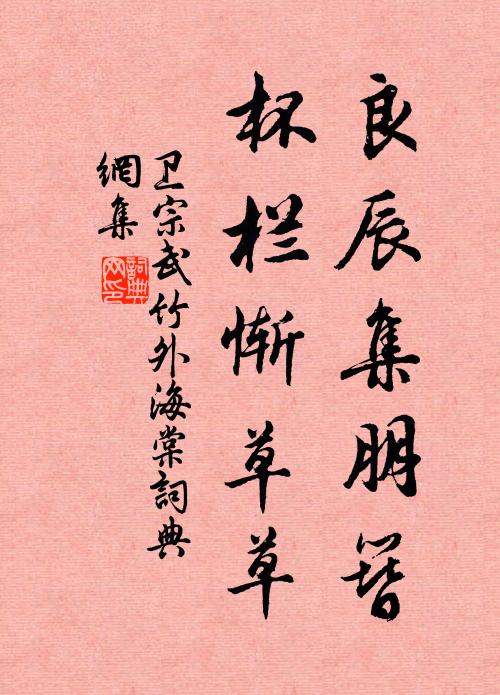 良辰集朋簪
杯栏惭草草
卫宗武竹外海棠詞典
網集
詞典網印